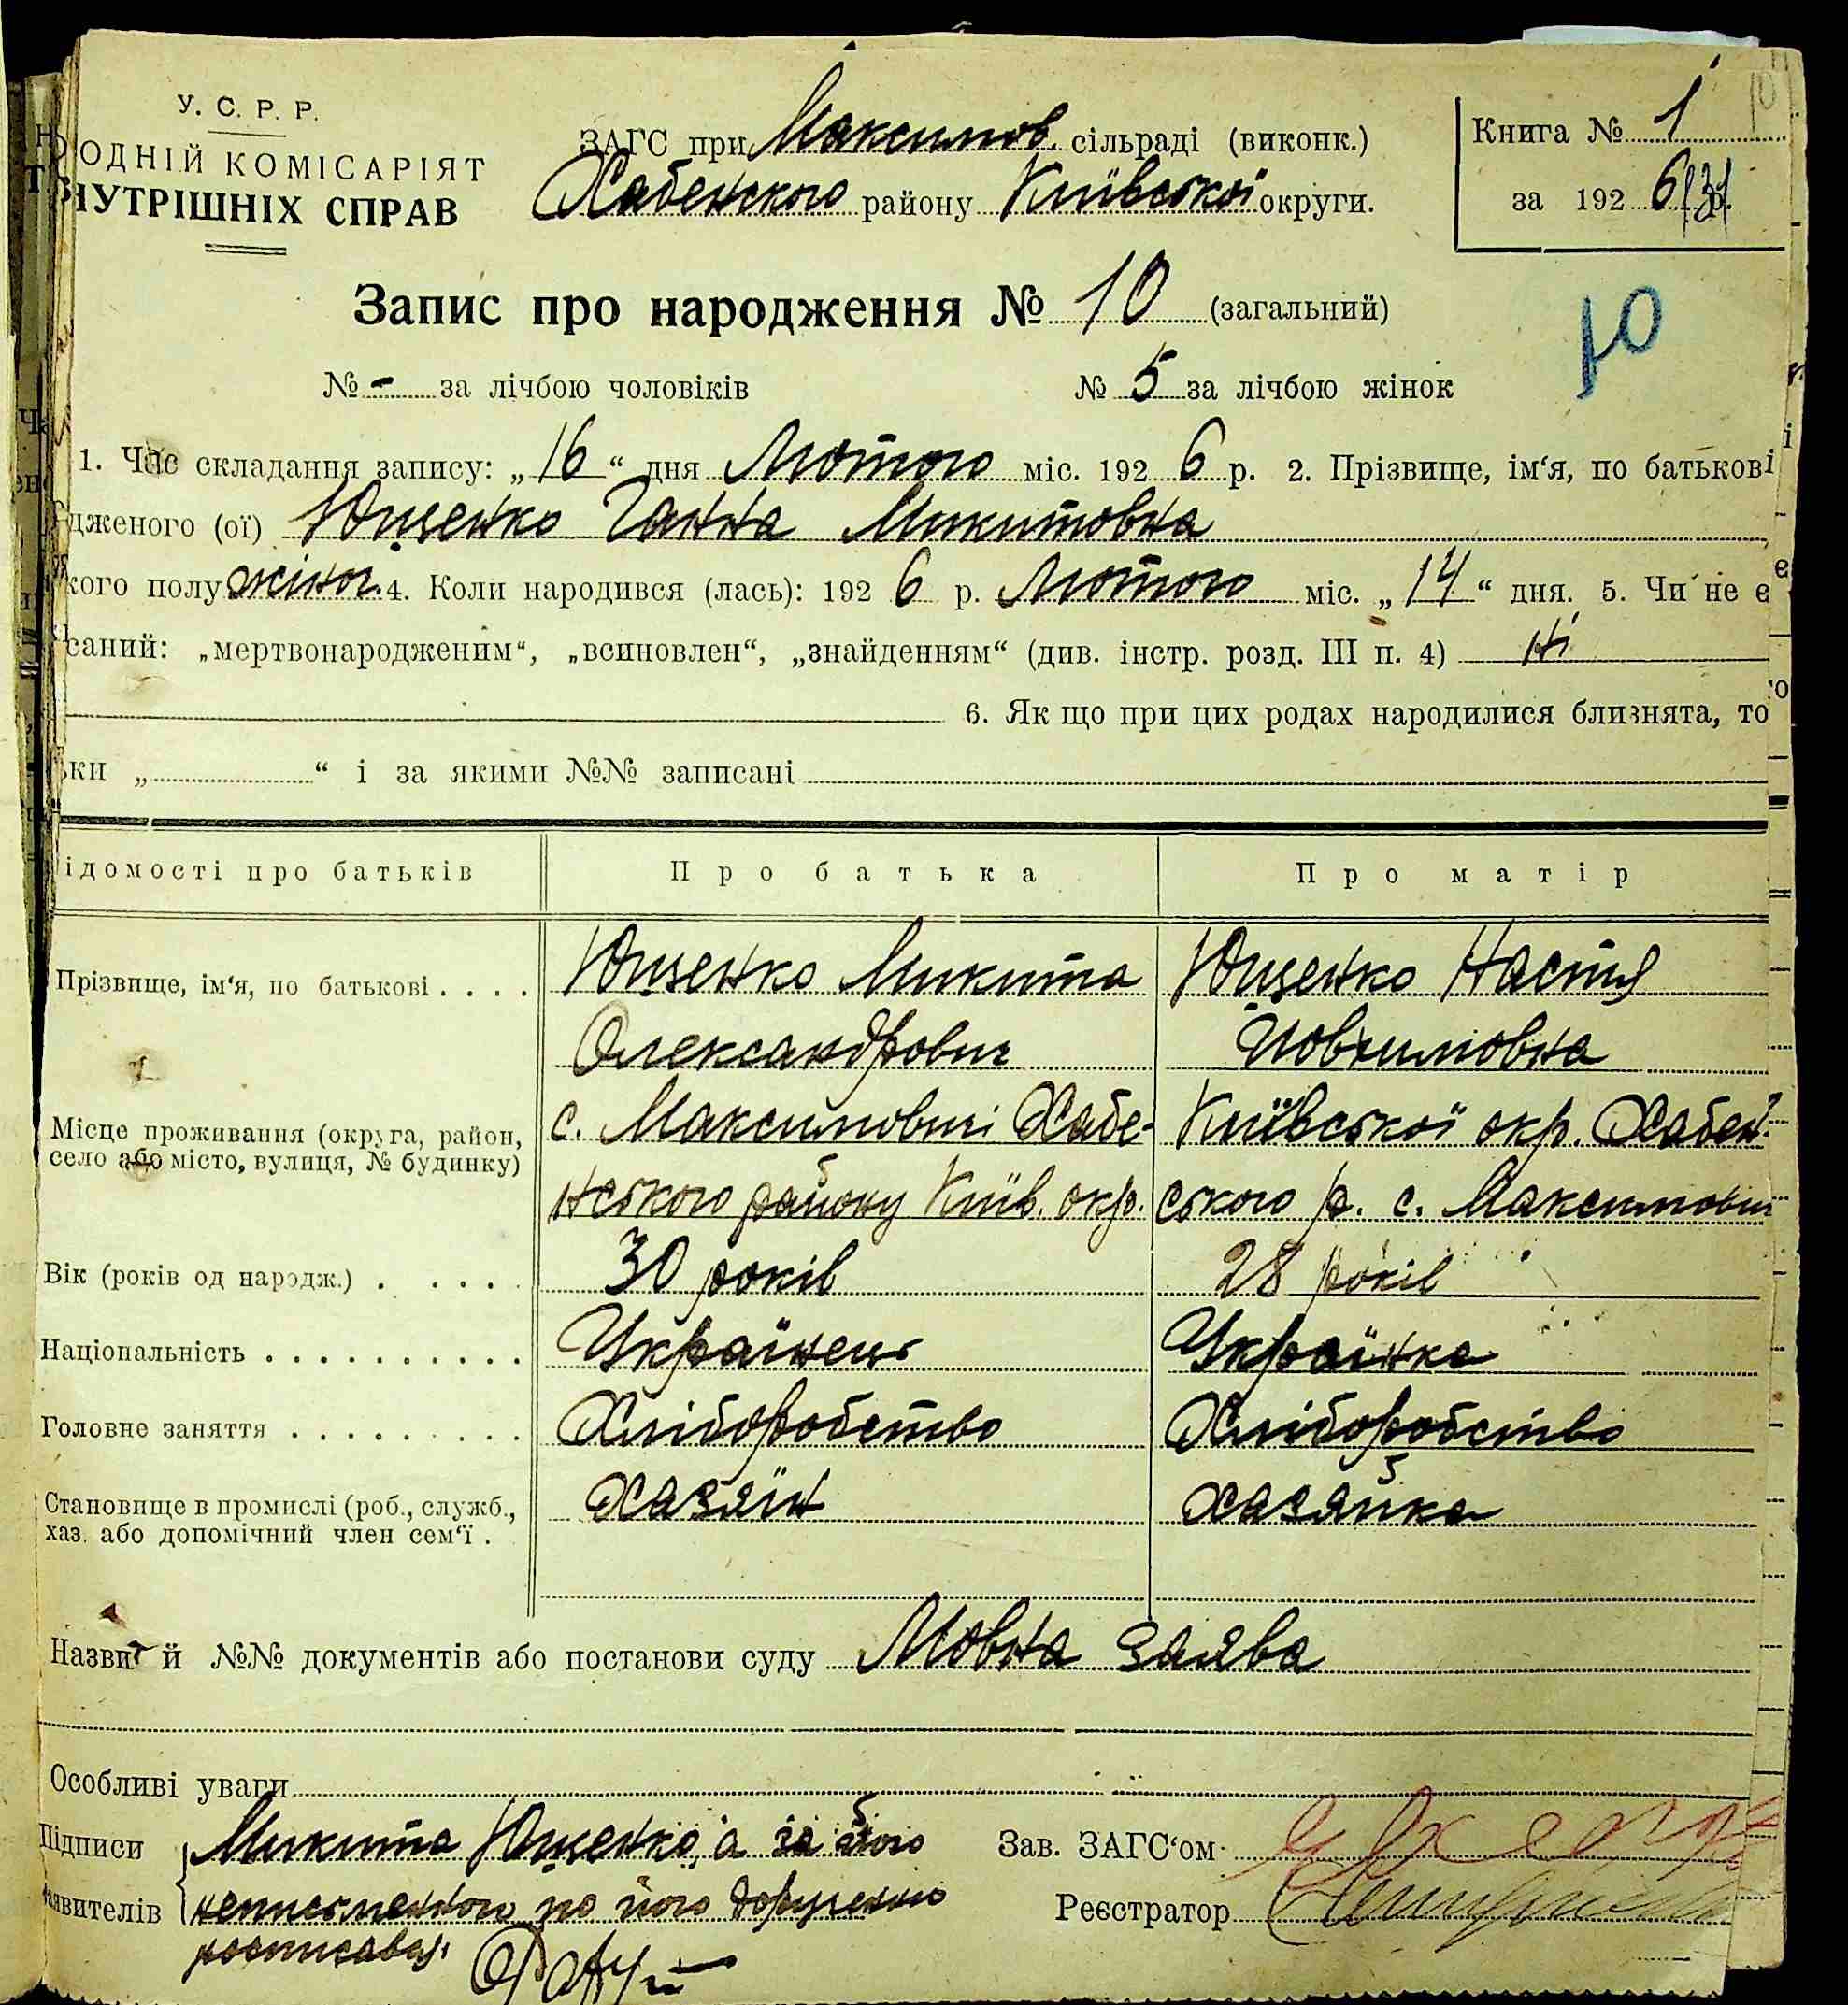 У. С. Р. Р.
ОДНІЙ КОМІСАРІЯТ
НУТРІШНІХ СПРАВ
ЗАГС при Максимов. сільраді (виконк.)
Хабенского району Київської округи.
Книга № 1
за 192 6 р.
Запис про народження № 10 (загальний)
10
№ - за лічбою чоловіків № 5 за лічбою жінок
1. Час складання запису: „16“ дня Лютого міс. 192 6 р. 2. Прізвище, ім‘я, по батькові
дженого (ої) Ющенко Ганна Микитовна
кого полу жіноч. 4. Коли народився (лась): 192 6 р. Лютого міс. „14“ дня. 5. Чи не є
саний: „мертвонародженим“, „всиновлен“, „знайденням“ (див. інстр. розд. III п. 4) Ні
6. Як що при цих родах народилися близнята, то
ки „ “ і за якими №№ записані
ідомості про батьків Про батька Про матір
Прізвище, ім‘я, по батькові . . . . Ющенко Микита Ющенко Настя
Олександрович Йовхимовна
Місце проживання (округа, район, с. Максимовичі Хабе- Київської окр. Хабен-
село або місто, вулиця, № будинку) нського району Київ. окр. ського р. с. Максимович
Вік (років од народж.) . . . . . 30 років 28 років
Національність . . . . . . . . . . Українець Українка
Головне заняття . . . . . . . . . Хліборобство Хліборобство
Становище в промислі (роб., служб., Хазяїн Хазяйка
хаз. або допомічний член сем‘ї .
Назви й №№ документів або постанови суду Мовна заява
Особливі уваги
Підписи Микита Ющенко, а за його
явителів неписменного по його дорученню
росписався
Зав. ЗАГС‘ом
Реєстратор